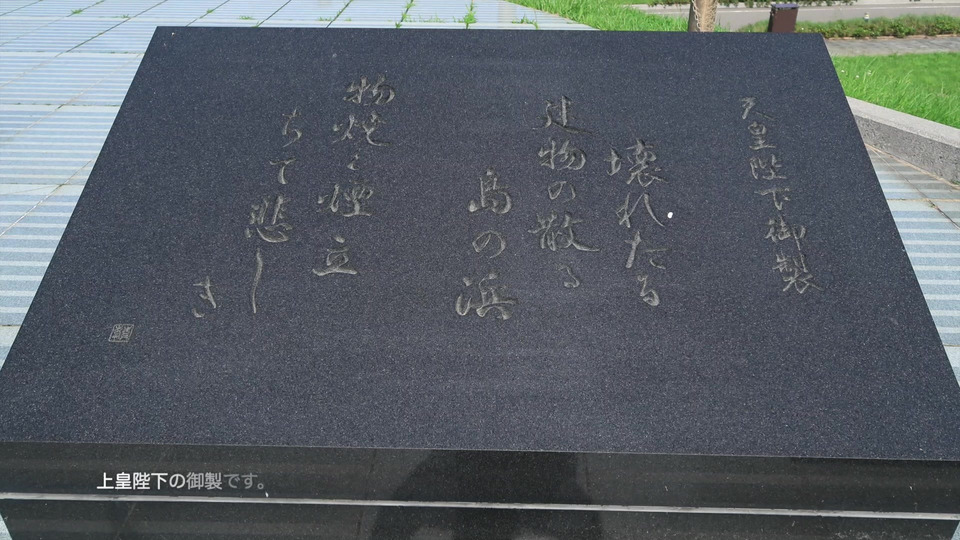 天皇陛下御製
壊れたる
建物の散る
島の浜
物焼く煙立
ちて悲し
き
上皇陛下の御製です。